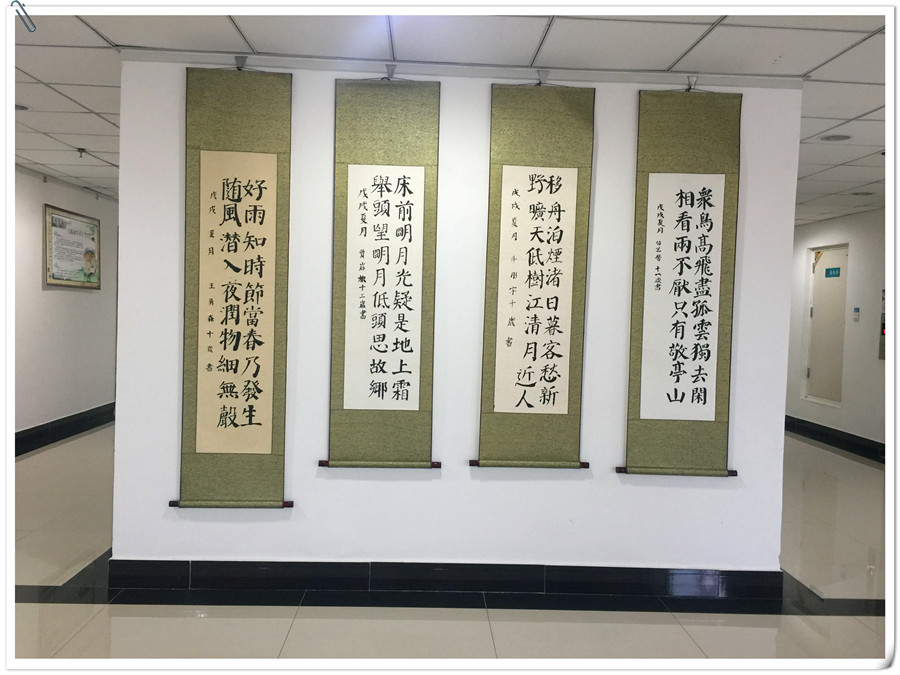 好雨知時節當春乃發生
随風潛入夜潤物細無聲
戊戌 夏月 王 十歲書
床前明月光疑是地上霜
舉頭望明月低頭思故鄉
戊戌夏月 十二歲書
移舟泊煙渚日暮客愁新
野曠天低樹江清月近人
戊戌夏月 十歲書
衆鳥高飛盡孤雲獨去閑
相看兩不厭只有敬亭山
戊戌夏月 十一歲書